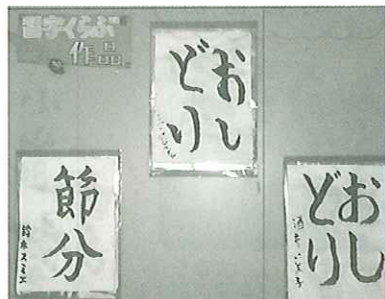 習字くらぶ
作品
おし
どり
節分
鈴木スミエ
おし
どり